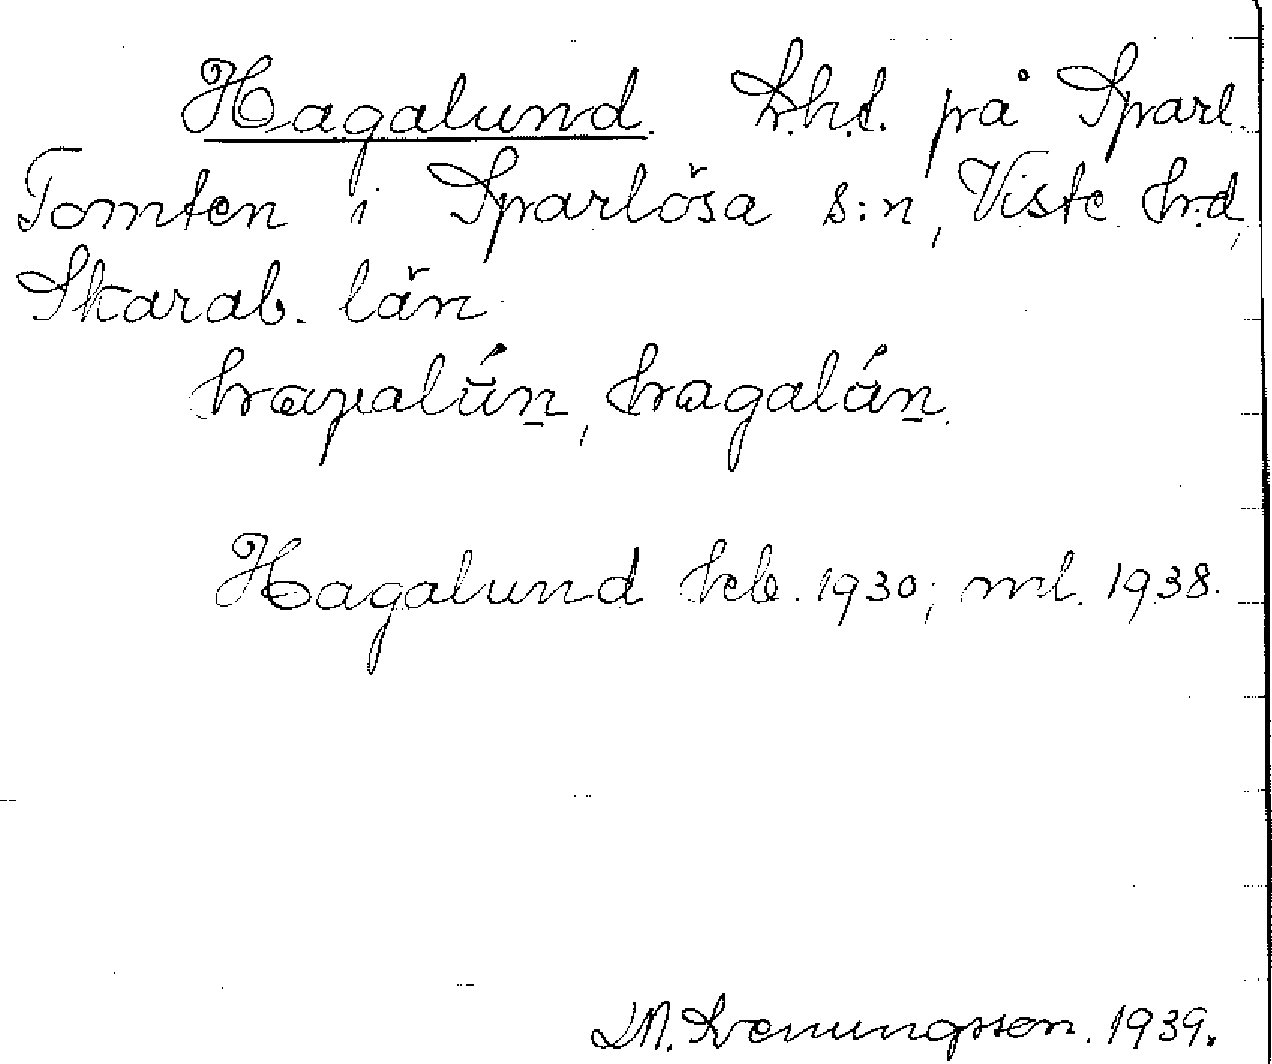 Hagalund. L.h.t. på Sparl.
Tomten i Sparlösa s:n, Viste hrd,
Skarab. län
hagalún, hagalún.
Hagalund heb. 1930; ml. 1938.
Svenungsson. 1939.